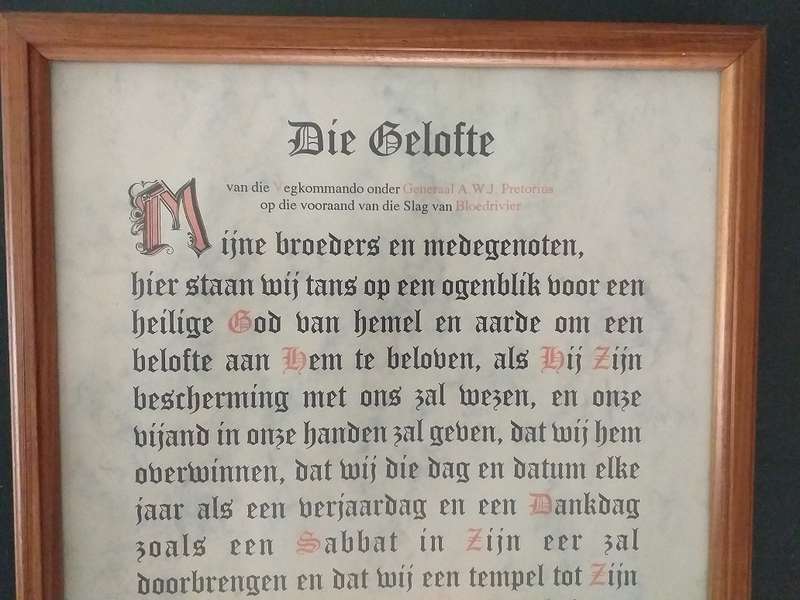 Die Gelofte
van die Vegkommando onder Generaal A.W.J. Pretorius
op die vooraand van die Slag van Bloedrivier
Mijne broeders en medegenoten,
hier staan wij tans op een ogenblik voor een
heilige God van hemel en aarde om een
belofte aan Hem te beloven, als Hij Zijn
bescherming met ons zal wezen, en onze
vijand in onze handen zal geven, dat wij hem
overwinnen, dat wij die dag en datum elke
jaar als een verjaardag en een Dankdag
zoals een Sabbat in Zijn eer zal
doorbrengen en dat wij een tempel tot Zijn